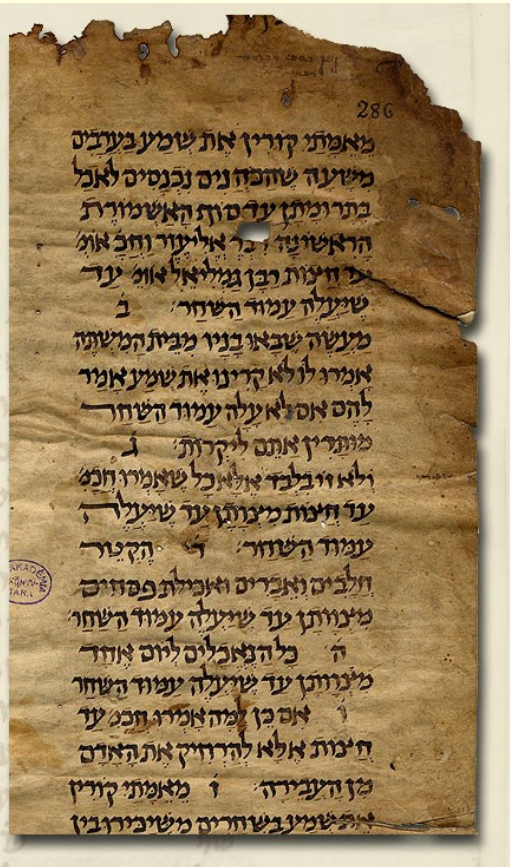 286
מאמתי קורין את שמע בערבים
משעה שהכהנים נכנסים לאכל
בתרומתן עד סוף האשמורת
הראשונה דבר אליעזר וחכ׳ אומ׳
עד חצות רבן גמליאל אומ׳ עד
שיעלה עמוד השחר׳ ב
מעשה שבאו בניו מבית המשתה
אמרו לו לא קרינו את שמע אמר
להם אם לא עלה עמוד השחר
מותרין אתם ליקרות׳ ג
ולא זו בלבד אלא כל שאמרו חכמ׳
עד חצות מיצותן עד שיעלה
עמוד השחר׳ ד הקטר
חלבים ואברים ואכילת פסחים
מיצוותן עד שיעלה עמוד השחר׳
ה כל הנאכלים ליום אחד
מיצוותן עד שיעלה עמוד השחר
ו אם כן למה אמרו חכמ׳ עד
חיצות אלא להרחיק את האדם
מן העבירה׳ ז מאמתי קורין
את שמע בשחרים משיכירו בין